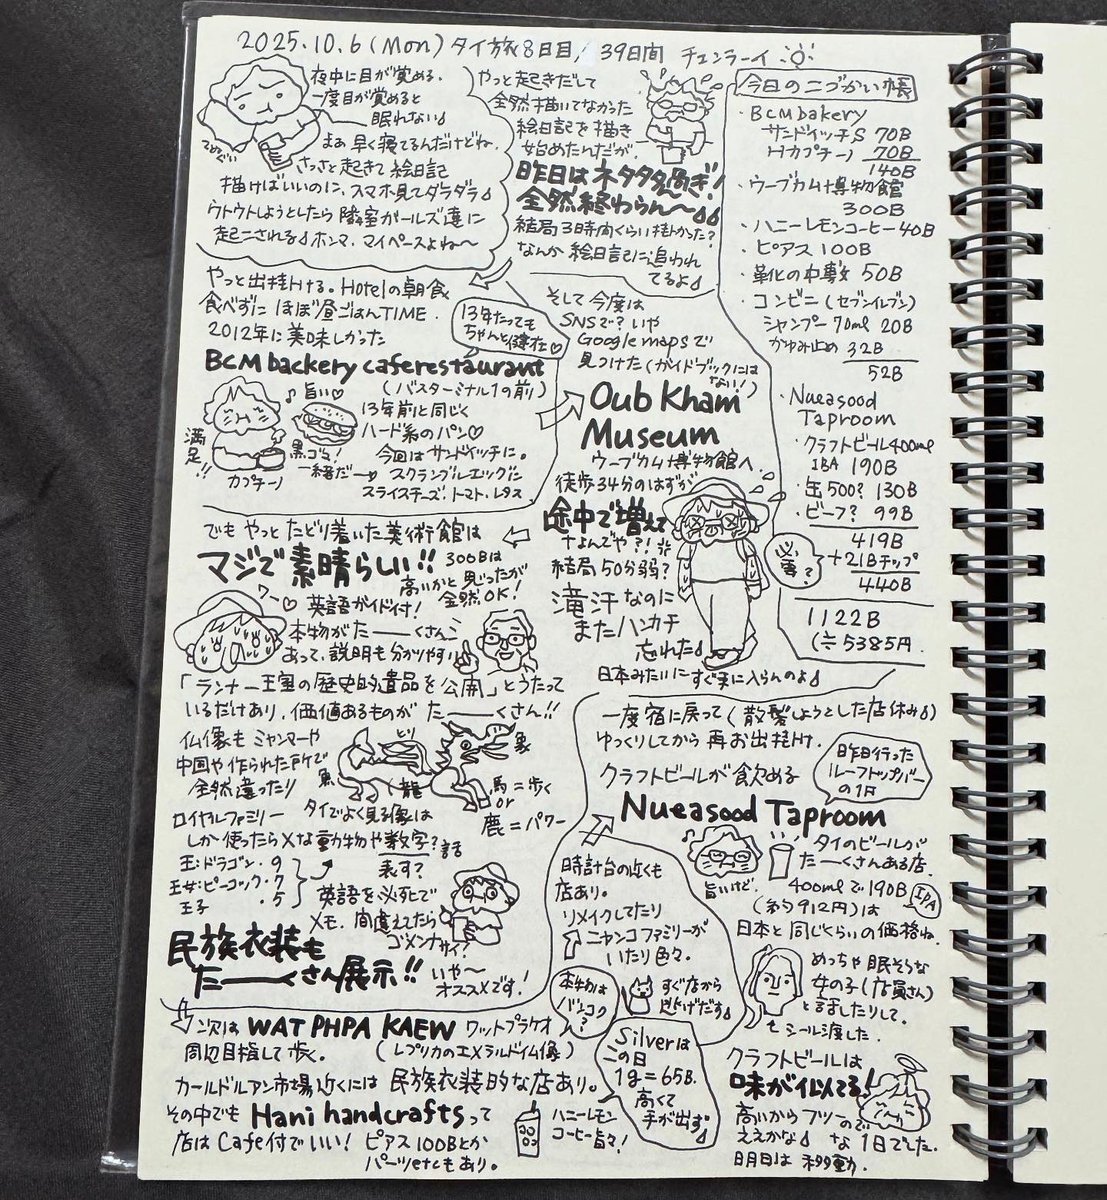 2025.10.6(Mon)タイ旅8日目/39日間 チェンラーイ
夜中に目が覚める。
一度目が覚めると
眠れない
まぁ早く寝てるんだけどね。
さっさと起きて絵日記
描けばいいのに、スマホ見てダラダラ
ウトウトしようとしたら隣室ガールズ達に
起こされる ホンマ、マイペースよね〜
やっと起きだして
全然描いてなかった
絵日記を描き
始めたんだが、
昨日はネタ多過ぎ!
全然終わらん〜
結局3時間くらい掛かった?
なんか絵日記に追われ
てるよ
やっと出掛ける。Hotelの朝食
食べずに ほぼ昼ごはんTIME.
2012年に美味しかった
13年たっても
ちゃんと健在♡
BCM backery caferestaurant
(バスターミナル1の前)
♪旨い♡
満足!!
カプチーノ
黒ゴマ!
一緒だー
13年前と同じく
ハード系のパン♡
今回はサンドイッチに。
スクランブルエッグに
スライスチーズ、トマト、レタス
そして今度は
SNSで?いや
Google mapsで
見つけた(ガイドブックには
ない!)
Oub Kham
Museum
ウーブカム博物館へ
徒歩34分のはずが
途中で増えて
なんでや?!
結局50分弱?
滝汗なのに
またハンカチ
忘れた
日本みたいにすぐ手に入らんのよ
でもやっとたどり着いた美術館は
マジで素晴らしい!!
300Bは
高いかと思ったが
全然OK!
ワー♡
英語ガイド付!
本物がたーーくさん
あって、説明も分かりやすい
「ランナー王国の歴史的遺品を公開」とうたって
いるだけあり、価値あるものがたーーくさん!!
仏像もミャンマーや
中国や作られた所で
全然違ったり
とり
象
魚
龍
馬=歩く
or
鹿=パワー
ロイヤルファミリー
タイでよく見る像は
しか使ったら×な動物や数字?話
表す?
王:ドラゴン・9
王女:ピーコック・7
王子 ・5
英語を必死で
メモ、間違えたら
ゴメンナサイ?
いや〜
オススメです!
民族衣装も
たーーくさん展示!!
次は WAT PHPA KAEW ワットプラケオ
周辺目指して歩く。
(レプリカのエメラルド仏像)
本物は
バンコク?
カールドルアン市場近くには 民族衣装的な店あり。
その中でも Hani handcraftsって
店はCafe付でいい! ピアス100Bとか
パーツetcもあり。
ハニーレモン
コーヒー旨々!
Silverは
この日
1g=65B.
高くて
手が出ず
時計台の近くも
店あり。
リメイクしてたり
ニャンコファミリーが
いたり色々。
すぐ店から
逃げだす
一度宿に戻って(散髪しようとした店休み)
ゆっくりしてから 再お出掛け.
クラフトビールが飲める
昨日行った
ルーフトップバー
の1F
Nueasood Taproom
タイのビールが
たーーくさんある店.
旨いけど、
400mlで190B
IPA
(約912円)は
日本と同じくらいの価格ね.
めっちゃ眠そうな
女の子(店員さん)
と話したりして。
シール渡した.
クラフトビールは
味が似てる!
高いからフツーので
ええかな な1日でした.
明日は移動.
今日のこづかい帳
・BCM bakery
サンドイッチS 70B
Hカプチーノ 70B
140B
・ウーブカム博物館
300B
・ハニーレモンコーヒー40B
・ピアス 100B
50B
・コンビニ(セブンイレブン)
シャンプー70ml 20B
かゆみ止め 32B
52B
・Nueasood
Taproom
・クラフトビール400ml
IBA 190B
・缶500? 130B
・ビーフ? 99B
419B
+21Bチップ
必要?
440B
1122B
(≒5385円.